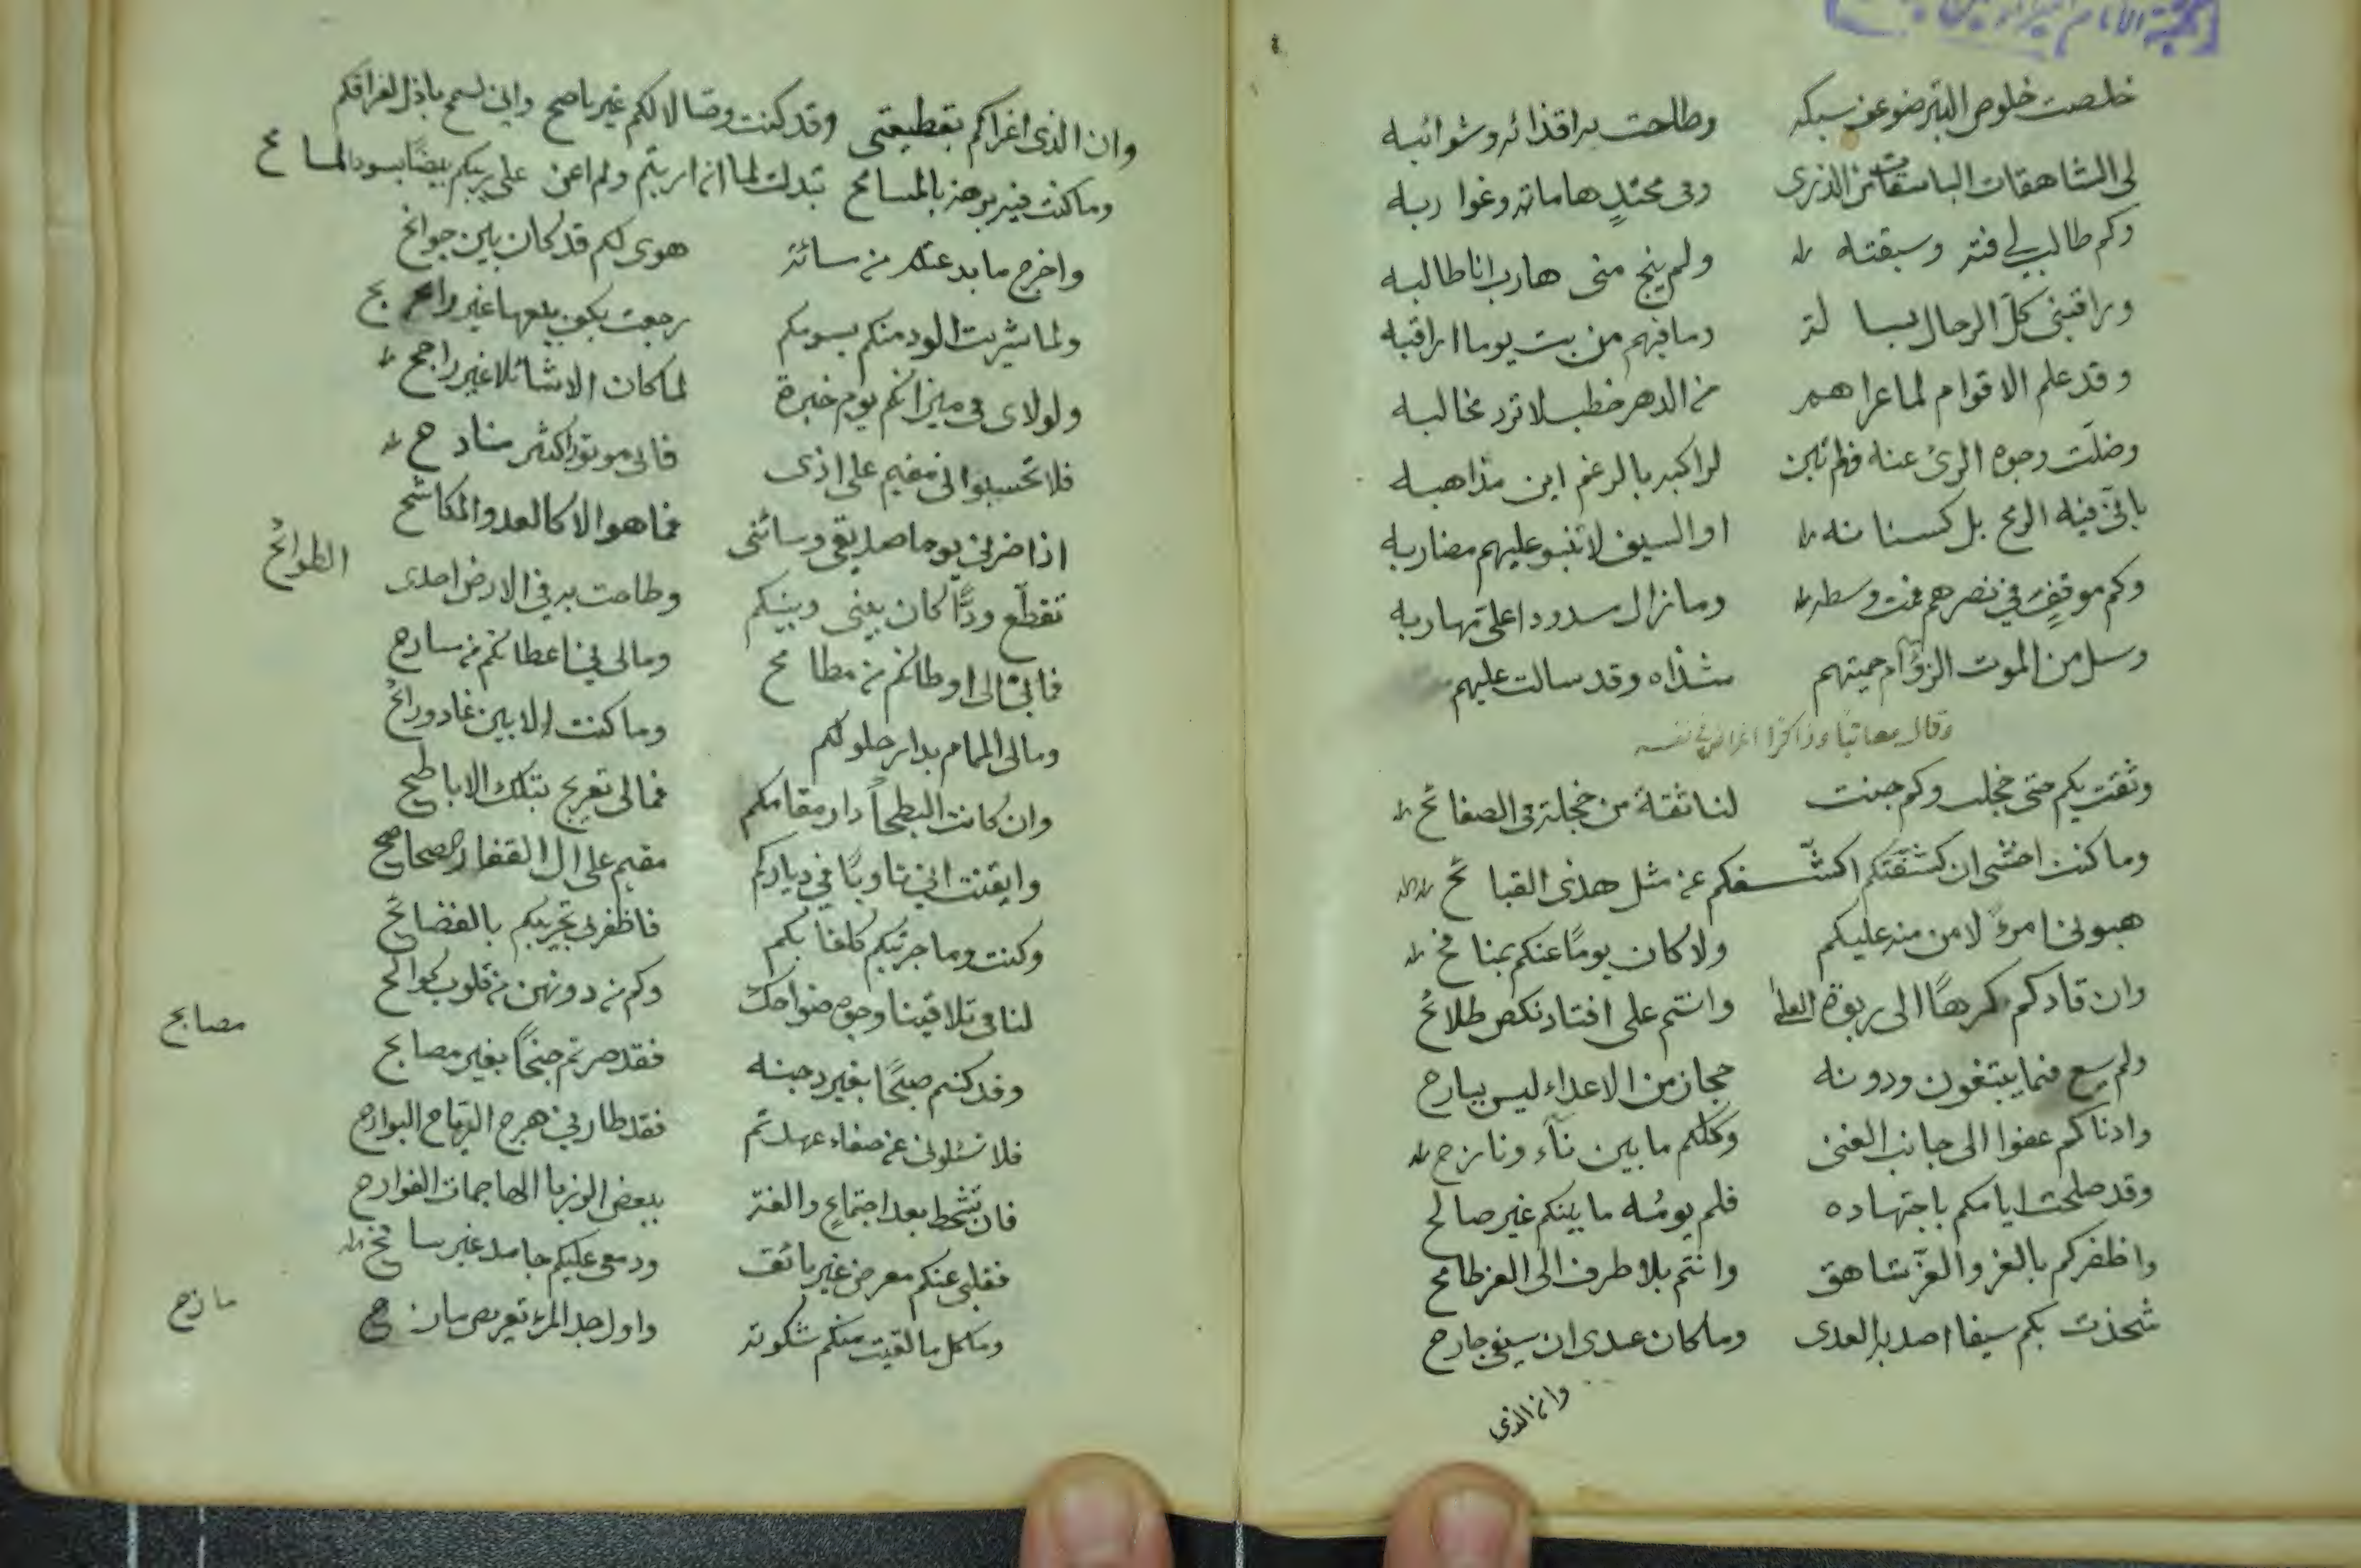 خلصت خلوص التبر ضوعف سبكه وطاحت به اقذائه وشوائبه
لى الشاهقات الباسقات من الذرى وفى محتدٍ هاماته وغواربه
وكم طالب لى فته وسبقته ولم ينج منى هارب انا طالبه
وراقبنى كل الرجال بسالة وما فيهم من بت يوما اراقبه
وقد علم الاقوام لما عراهم من الدهر خطب لا ترد مخالبه
وضلت وجوه الرئ عنه فلم تبن لراكبه بالرغم اين مذاهبه
بانى فيه الرمح بل كسنانه او السيف لا تنبو عليهم مضاربه
وكم موقفٍ في نصرهم قمت وسطه وما زال مسدودا على مهاربه
وسل من الموت الزؤام حميتهم شذاه وقد سالت عليهم
وقال معاتبا وذاكرا اغراض فى نفسه
وثقت بكم حتى خجلت وكم جنت لنا ثقة من خجلة فى الصفائح
وما كنت اخشى ان كشفتكم اكشفكم عن مثل هذى القبائح
هبونى امرءً لا من منه عليكم ولا كان يومًا عنكم بمنافح
وان قادكم كرهًا الى ربوة العلى وانتم على اقتاد نكص طلائح
ولم يسع فيما يبتغون ودونه حجاز من الاعداء ليس ببارح
وادناكم عفوا الى جانب الغنى وكلكم ما بين ناء ونازح
وقد صلحت ايامكم باجتهاده فلم يومُه ما بينكم غير صالح
واظفركم بالغر والعزّ شاهق وانتم بلا طرف الى العز طامح
شحذت بكم سيفا اصد به العدى وما كان عندى ان سيفى جارح
وان الذى
وان الذى اغراكم بقطيعتى وقد كنت وصالا لكم غير ناصح وانى لسمح باذل لفراقكم
وما كنت فيه برهة بالمسامح تبدلت لما انه اربتم ولم اعن على ريبكم بيضًا بسود المسائح
واخرج ما بدعتكم من سائة هوى لكم قد كان بين جوانح
ولما شريت الود منكم بسومكم رجعت بكف بيعها غير رابح
ولولاى فى ميزانكم يوم خبرة لما كان الا شائلا غير راجح
فلا تحسبوا انى مقيم على اذى فانى موتور اكثر منادح
اذا ضرنى يوما صديقى وسائنى فما هو الا كالعدو المكاشح
تقطّع ودًّا كان بينى وبينكم وطاحت به فى الارض احدى الطوائح
فما بى الى اوطانكم من مطامح ومالى فى اعطانكم من سارح
ومالى المام بدار حلولكم وما كنت الا بين غاد ورائح
وان كانت البطحاء دار مقامكم فمالى تعريج بتلك الاباطح
وايقنت انى ثاويًا في دياركم مقيم على ال القفار الصحاصح
وكنت وما جربتكم كلفا بكم فاظفرنى تجريبكم بالفضائح
لنا فى تلاقينا وجوه ضواحك وكم من دونهن من قلوب كوالح
وقد كنتم صبحًا بغير دجنه فقد صرتم جنحًا بغير مصابح
مصابح
فلا تسئلونى عن صفاء عهدتم فقد طار بى هرج الرياح البوارح
فان تشحط بعد اجتماع والفة ببعض الرزايا الهاجمات الفوادح
فقلبى عنكم معرض غير تائق ودمعى عليكم جامد غير سائح
وما كل ما لقيت منكم شكوته واول جد المرء تعريض مازح
مازح